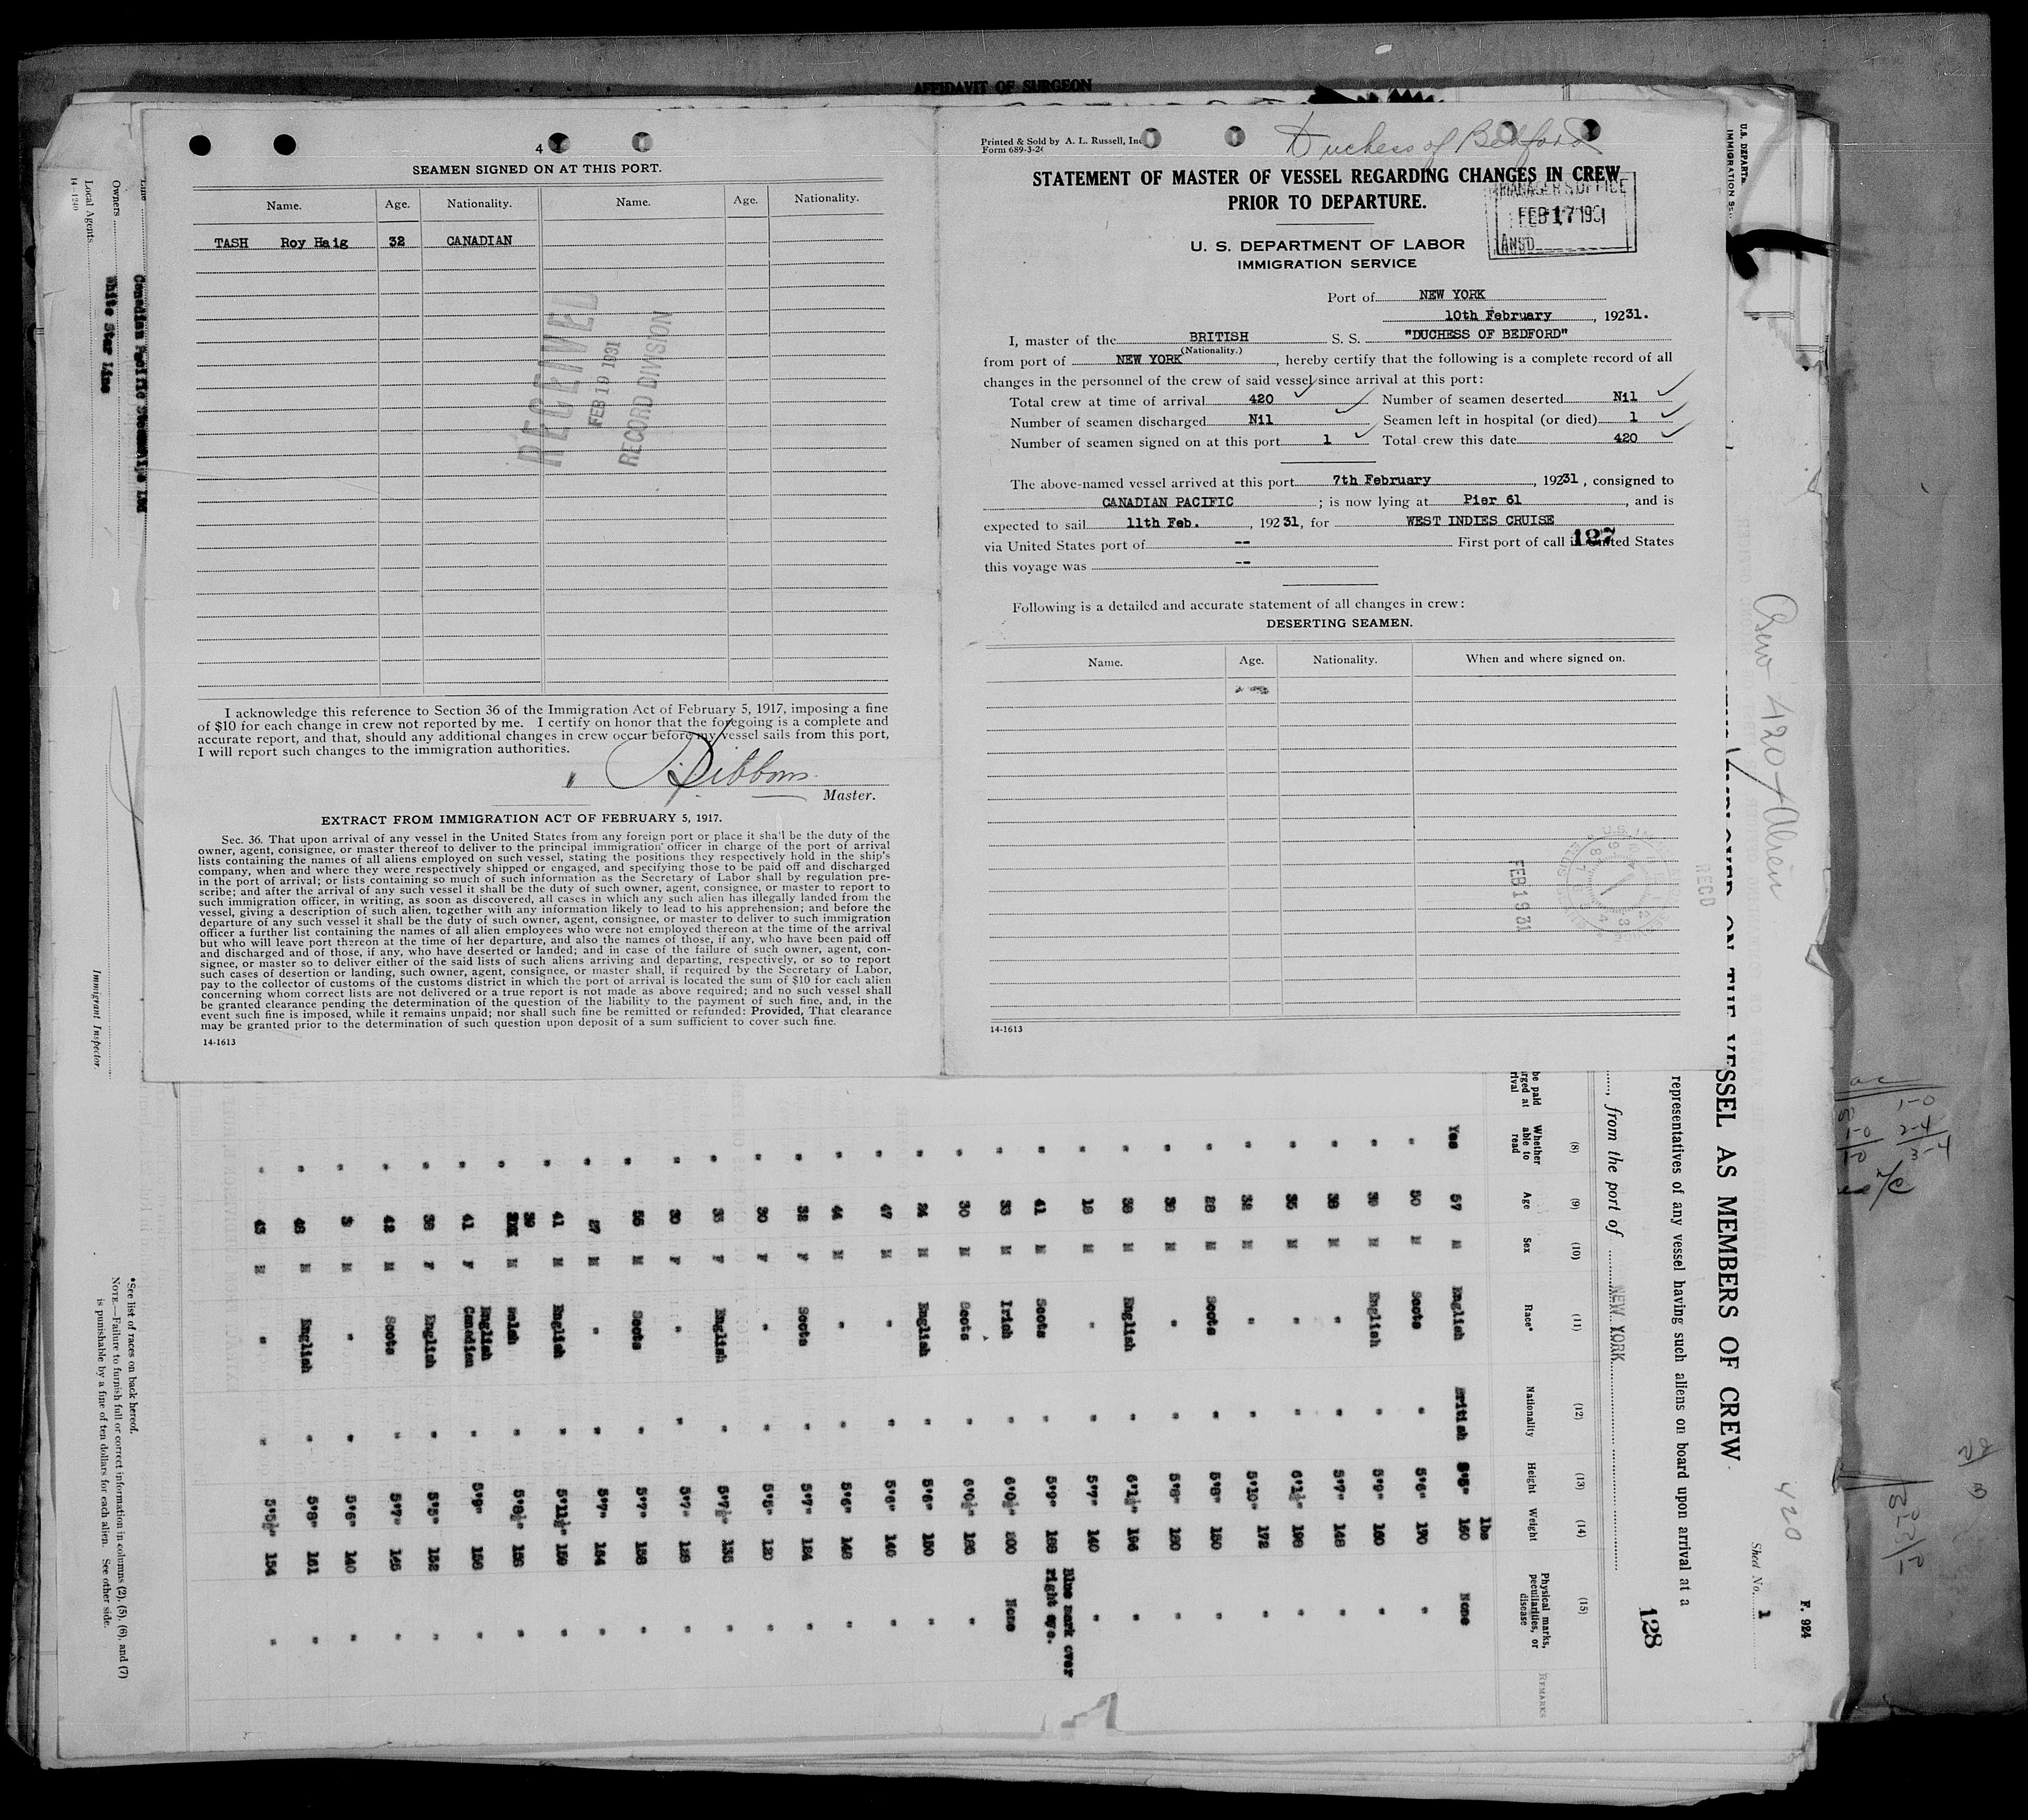 AFFIDAVIT OF SURGEON
4
SEAMEN SIGNED ON AT THIS PORT.
Name. Age. Nationality. Name. Age. Nationality.
TASH Roy Haig 32 CANADIAN
RECEIVED
FEB 19 1931
RECORD DIVISION
I acknowledge this reference to Section 36 of the Immigration Act of February 5, 1917, imposing a fine
of $10 for each change in crew not reported by me. I certify on honor that the foregoing is a complete and
accurate report, and that, should any additional changes in crew occur before my vessel sails from this port,
I will report such changes to the immigration authorities.
Master.
EXTRACT FROM IMMIGRATION ACT OF FEBRUARY 5, 1917.
Sec. 36. That upon arrival of any vessel in the United States from any foreign port or place it shall be the duty of the
owner, agent, consignee, or master thereof to deliver to the principal immigration officer in charge of the port of arrival
lists containing the names of all aliens employed on such vessel, stating the positions they respectively hold in the ship's
company, when and where they were respectively shipped or engaged, and specifying those to be paid off and discharged
in the port of arrival; or lists containing so much of such information as the Secretary of Labor shall by regulation pre-
scribe; and after the arrival of any such vessel it shall be the duty of such owner, agent, consignee, or master to report to
such immigration officer, in writing, as soon as discovered, all cases in which any such alien has illegally landed from the
vessel, giving a description of such alien, together with any information likely to lead to his apprehension; and before the
departure of any such vessel it shall be the duty of such owner, agent, consignee, or master to deliver to such immigration
officer a further list containing the names of all alien employees who were not employed thereon at the time of the arrival
but who will leave port thereon at the time of her departure, and also the names of those, if any, who have been paid off
and discharged and of those, if any, who have deserted or landed; and in case of the failure of such owner, agent, con-
signee, or master so to deliver either of the said lists of such aliens arriving and departing, respectively, or so to report
such cases of desertion or landing, such owner, agent, consignee, or master shall, if required by the Secretary of Labor,
pay to the collector of customs of the customs district in which the port of arrival is located the sum of $10 for each alien
concerning whom correct lists are not delivered or a true report is not made as above required; and no such vessel shall
be granted clearance pending the determination of the question of the liability to the payment of such fine, and, in the
event such fine is imposed, while it remains unpaid; nor shall such fine be remitted or refunded: Provided, That clearance
may be granted prior to the determination of such question upon deposit of a sum sufficient to cover such fine.
14-1613
Printed & Sold by A. L. Russell, Inc
Form 689-3-2
Duchess of Bedford
STATEMENT OF MASTER OF VESSEL REGARDING CHANGES IN CREW
PRIOR TO DEPARTURE.
MANAGER'S OFFICE
FEB 17 1931
ANSD
U. S. DEPARTMENT OF LABOR
IMMIGRATION SERVICE
Port of NEW YORK
10th February, 19231.
I, master of the BRITISH S. S. "DUCHESS OF BEDFORD"
(Nationality.)
from port of NEW YORK, hereby certify that the following is a complete record of all
changes in the personnel of the crew of said vessel since arrival at this port:
Total crew at time of arrival 420 Number of seamen deserted Nil
Number of seamen discharged Nil Seamen left in hospital (or died) 1
Number of seamen signed on at this port 1 Total crew this date 420
The above-named vessel arrived at this port 7th February, 19231, consigned to
CANADIAN PACIFIC; is now lying at Pier 61, and is
expected to sail 11th Feb., 19231, for WEST INDIES CRUISE
via United States port of -- First port of call in United States
127
this voyage was --
Following is a detailed and accurate statement of all changes in crew:
DESERTING SEAMEN.
Name. Age. Nationality. When and where signed on.
FEB 19 31
RECD
14-1613
Crew 420 Alien
VESSEL AS MEMBERS OF CREW
representatives of any vessel having such aliens on board upon arrival at a
, from the port of NEW YORK
F. 924
Sheet No. 1
420
128
(8) (9) (10) (11) (12) (13) (14) (15)
Whether able to read Age Sex Race* Nationality Height Weight Physical marks, peculiarities, or disease REMARKS
lbs
Yes 57 M English British 5'8" 160 None
" 50 M Scots " 5'6" 170 "
" 39 M English " 5'9" 160 "
" 38 M " " 5'7" 148 "
" 35 M " " 6'1½" 198 "
" 32 M " " 5'10" 172 "
" 28 M Scots " 5'8" 150 "
" 39 M " " 5'8" 180 "
" 38 M English " 6'1½" 194 "
" 18 M " " 5'7" 140 "
" 41 M Scots " 5'9" 188 Blue mark over right eye.
" 33 M Irish " 6'0½" 200 None
" 30 M Scots " 6'0½" 185 "
" 24 M English " 5'6" 150 "
" 47 M " " 5'6" 140 "
" 44 M " " 5'6" 148 "
" 32 F Scots " 5'7" 124 "
" 30 F " " 5'5" 120 "
" 35 F English " 5'7½" 135 "
" 30 F " " 5'7" 128 "
" 55 M Scots " 5'7" 158 "
" 27 M " " 5'7" 164 "
" 41 M English " 5'11½" 159 "
" 39 M Welsh " 5'8½" 158 "
" 41 F English Canadian " 5'9" 156 "
" 38 F English " 5'5" 152 "
" 42 M Scots " 5'7" 145 "
" M " " 5'6" 140 "
" 48 M English " 5'8" 161 "
" 43 M " " 5'5½" 154 "
Line Canadian Pacific Steamships Ltd
Owners White Star Line
Local Agents
14-1240
Immigrant Inspector.
*See list of races on back hereof.
NOTE.—Failure to furnish full or correct information in columns (2), (5), (6), and (7)
is punishable by a fine of ten dollars for each alien. See other side.